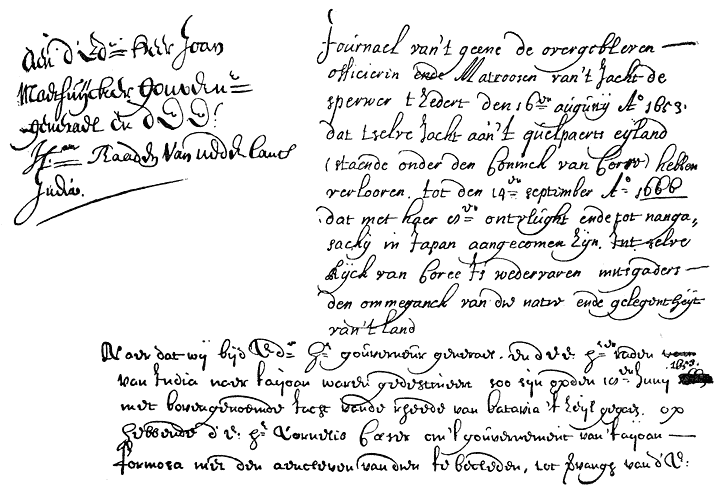 Aen d'Ed:ⁿ Heer Joan
Maetsuijcker Gouvern:ʳ
generael en d' E E:
H:ʳᵉⁿ Raaden van nederlants
India.
Journael van't geene de overgebleven
officieren ende Matroosen van't Jacht de
sperwer 't zedert den 16ᵉⁿ augustij Aº 1653.
dat tselve Jacht aan't quelpaerts eyland
(staende onder den Coninck van Coree) hebben
verlooren. tot den 14ᵉⁿ september Aº 1666
dat met haer 8ᵉⁿ ontvlught ende tot nanga„
sackij in Japan aangecomen zijn. Int selve
Rijck van Coree is wedervaren mitsgaders
den ommeganck van die natie ende gelegentheijt
van't land
Naer dat wij bijd Ed:ᵉ Hʳ gouverneur generael. en d'E E: Hʳᵉⁿ raden
van India naer taijoan waren gedestineert soo sijn opden 18ᵉⁿ Junij 1653.
met bovengenoemde Jacht vande rheede van batavia 't zeijl gegaen. op
hebbende d'E: Hʳ Cornelis Caeser om't gouvernement van taijoan
formosa met den aencleven van dien te becleden, tot vervangh van d'E: